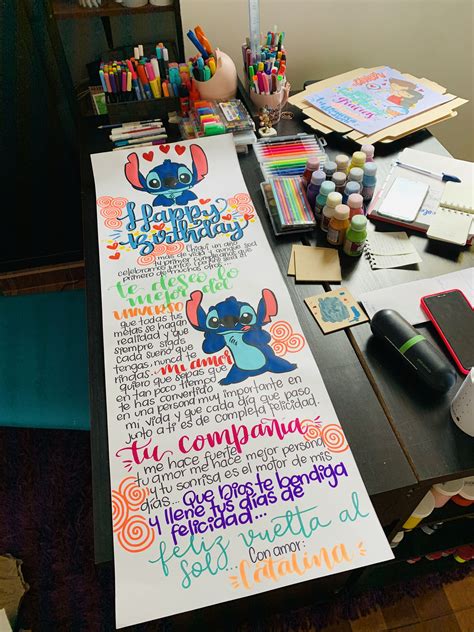 Happy
Birthday
Chiqui un año
mas de vida y aunque sea
tu primer cumpleaños que
celebramos juntos
primero de muchos
te deseo lo
mejor del
UNIVERSO
que todas tus
metas se hagan
realidad y que
siempre sigas
cada sueño que
tengas, nunca te
rindas... mi amor
quiero que sepas que
en tan poco tiempo
te has convertido
en una persona muy importante en
mi vida y que cada día que paso
junto a ti es de completa felicidad.
tu compañia
me hace fuerte,
tu amor me hace mejor persona
y tu sonrisa es el motor de mis
días... Que Dios te bendiga
y llene tus días de
felicidad...
feliz vuelta al
sol...
Con amor:
Catalina
Gracias